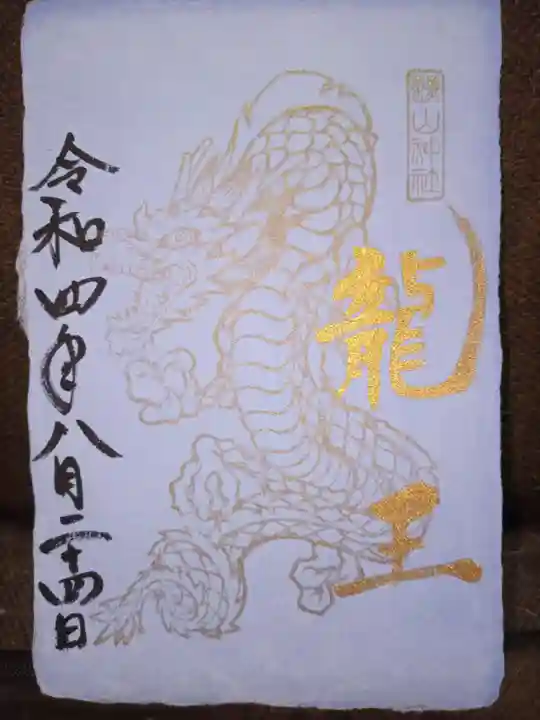 山神社
龍王
令和四年八月二十四日